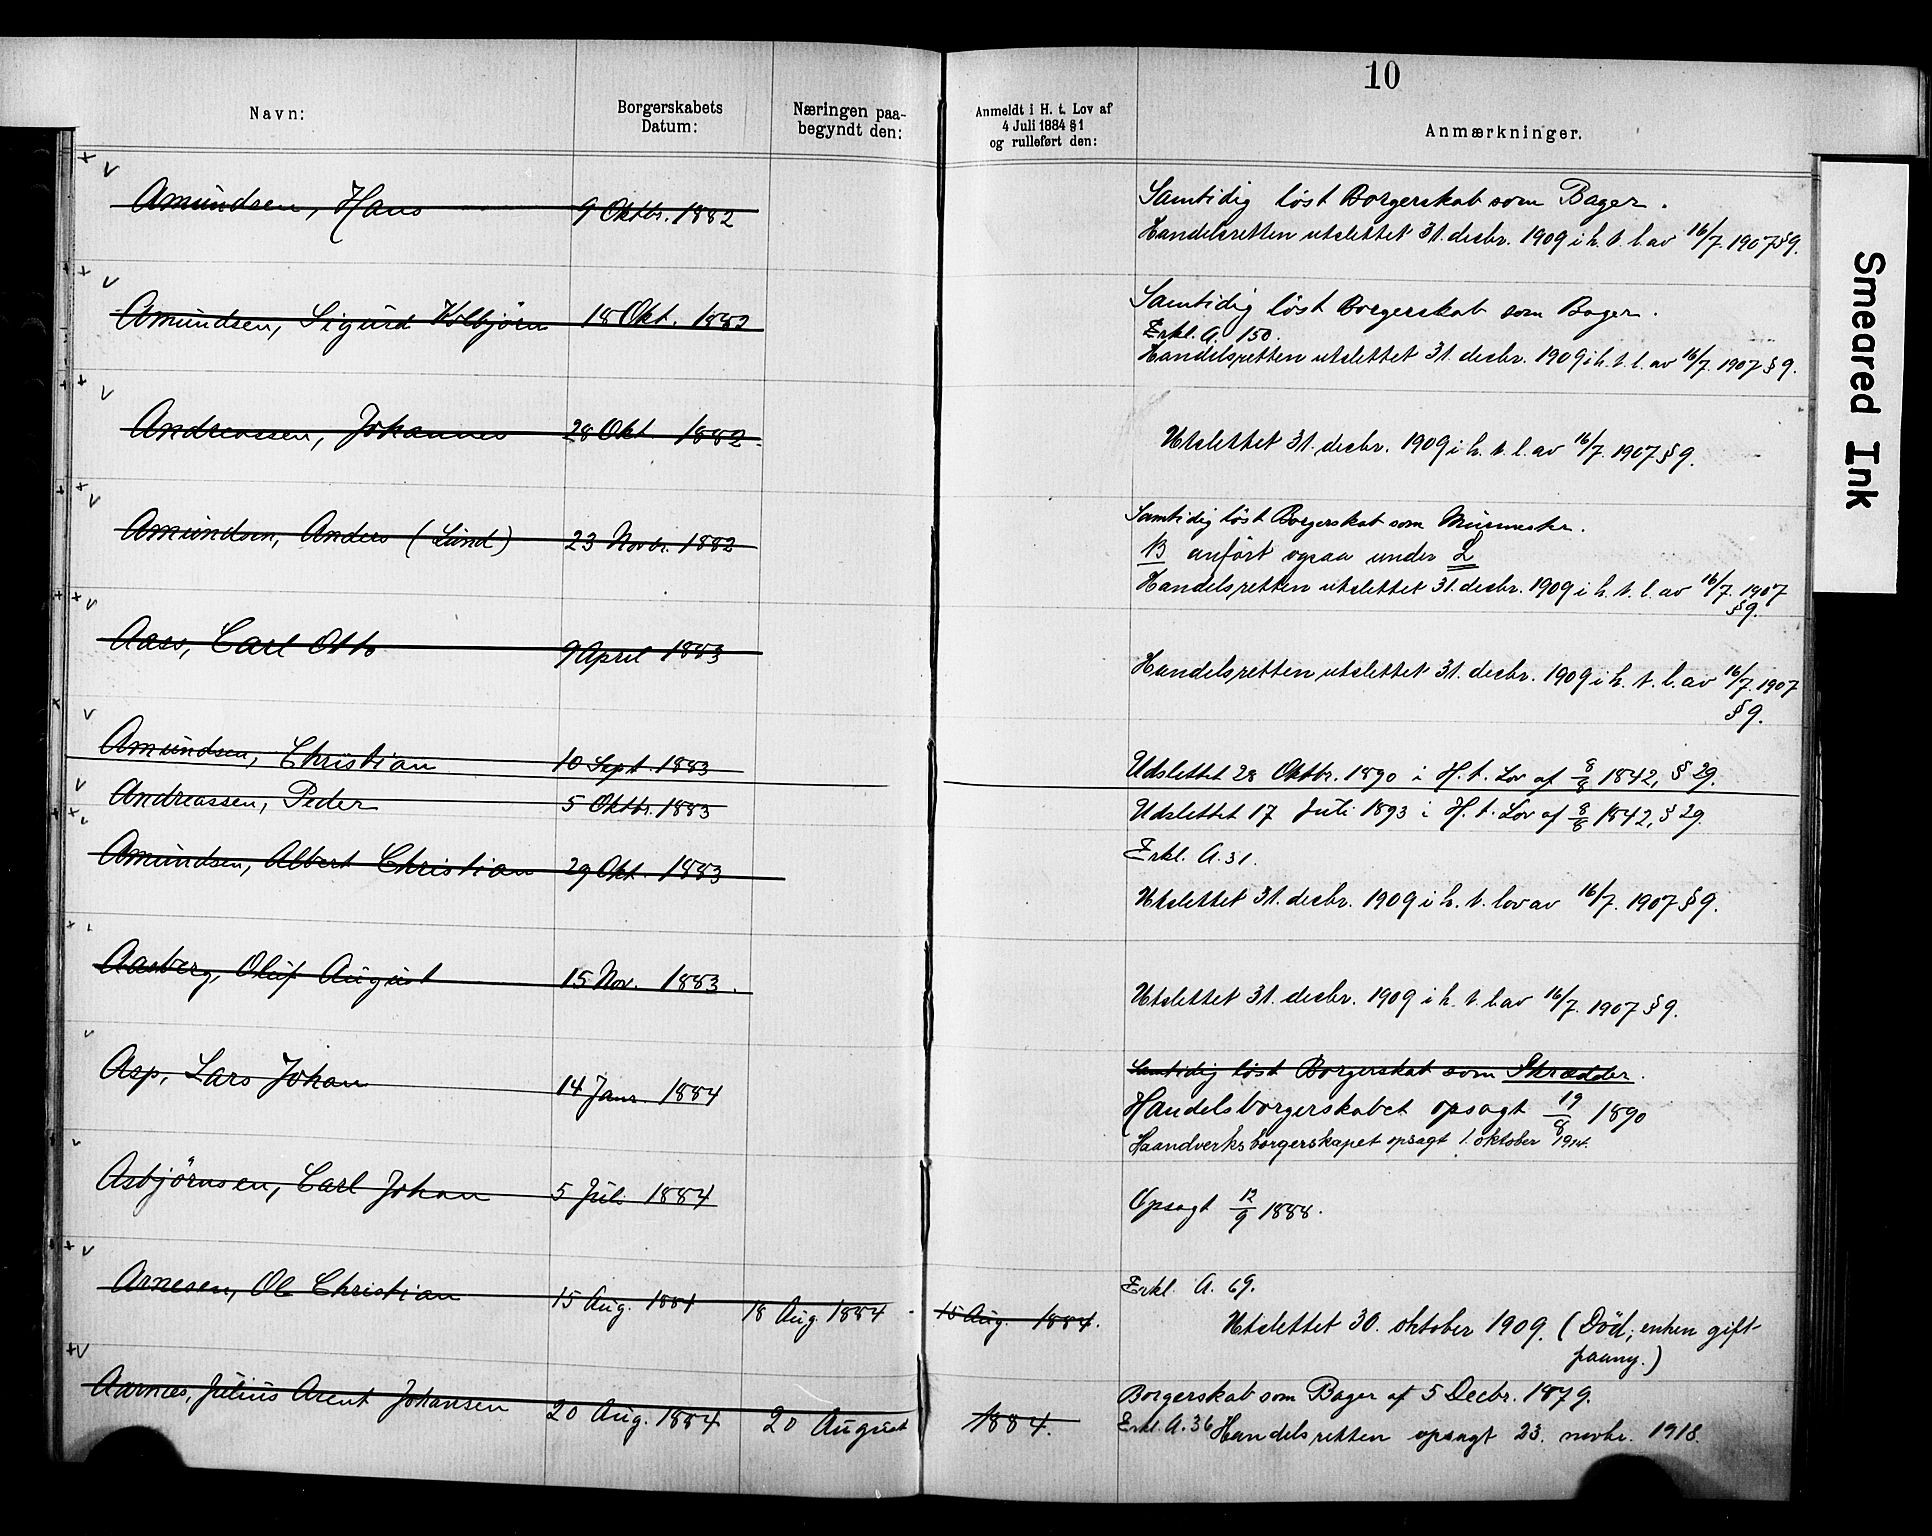 10
Navn:
Borgerskabets
Datum:
Næringen paa-
begyndt den:
Anmeldt i H. t. Lov af
4 Juli 1884 § 1
og rulleført den:
Anmærkninger.
Smeared Ink
Amundsen, Hans 9 Oktbr. 1882 Samtidig løst Borgerskab som Bager.
Handelsretten utslettet 31. decbr. 1909 i h. t. l. av 16/7. 1907 § 9.
Amundsen, Sigurd Kolbjörn 18 Okt. 1882 Samtidig løst Borgerskab som Bager.
Erkl. A. 150.
Handelsretten utslettet 31. decbr. 1909 i h. t. l. av 16/7. 1907 § 9.
Andreassen, Johannes 28 Okt. 1882. Utslettet 31. decbr. 1909 i h. t. l. av 16/7. 1907 § 9.
Amundsen, Anders (Lund) 23 Novbr. 1882 Samtidig løst Borgerskab som Murmester.
B anført ogsaa under L
Handelsretten utslettet 31. decbr. 1909 i h. t. l. av 16/7. 1907
§ 9.
Aass, Carl Otto 9 April 1883 Handelsretten utslettet 31. decbr. 1909 i h. t. l. av 16/7. 1907
§ 9.
Amundsen, Christian 10 Sept. 1883 Udslettet 28 Oktbr. 1890 i H. t. Lov af 8/8 1842, § 29.
Andreassen, Peder 5 Oktbr. 1883 Udslettet 17 Juli 1893 i H. t. Lov af 8/8 1842, § 29.
Amundsen, Albert Christian 29 Okt. 1883 Erkl. A. 31.
Utslettet 31. decbr. 1909 i h. t. lov av 16/7. 1907 § 9.
Aasberg, Oluf August 15 Nov. 1883. Utslettet 31. decbr. 1909 i h. t. l av 16/7. 1907 § 9.
Asp, Lars Johan 14 Janr. 1884 Samtidig løst Borgerskab som Skrædder.
Handelsborgerskabet opsagt 19/8 1890
Haandverksborgerskapet opsagt 1. oktober 1914.
Asbjörnsen, Carl Johan 5 Juli 1884 Opsagt 12/9 1888.
Arnesen, Ole Christian 15 Aug. 1884 18 Aug. 1884 15 Aug. 1884. Erkl. A. 69.
Utslettet 30. oktober 1909. (Död; enken gift
paany.)
Aarnæs, Julius Arent Johansen 20 Aug. 1884 20 August 1884. Borgerskab som Bager af 5 Decbr. 1879.
Erkl. A. 36 Handelsretten opsagt 23. novbr. 1918.